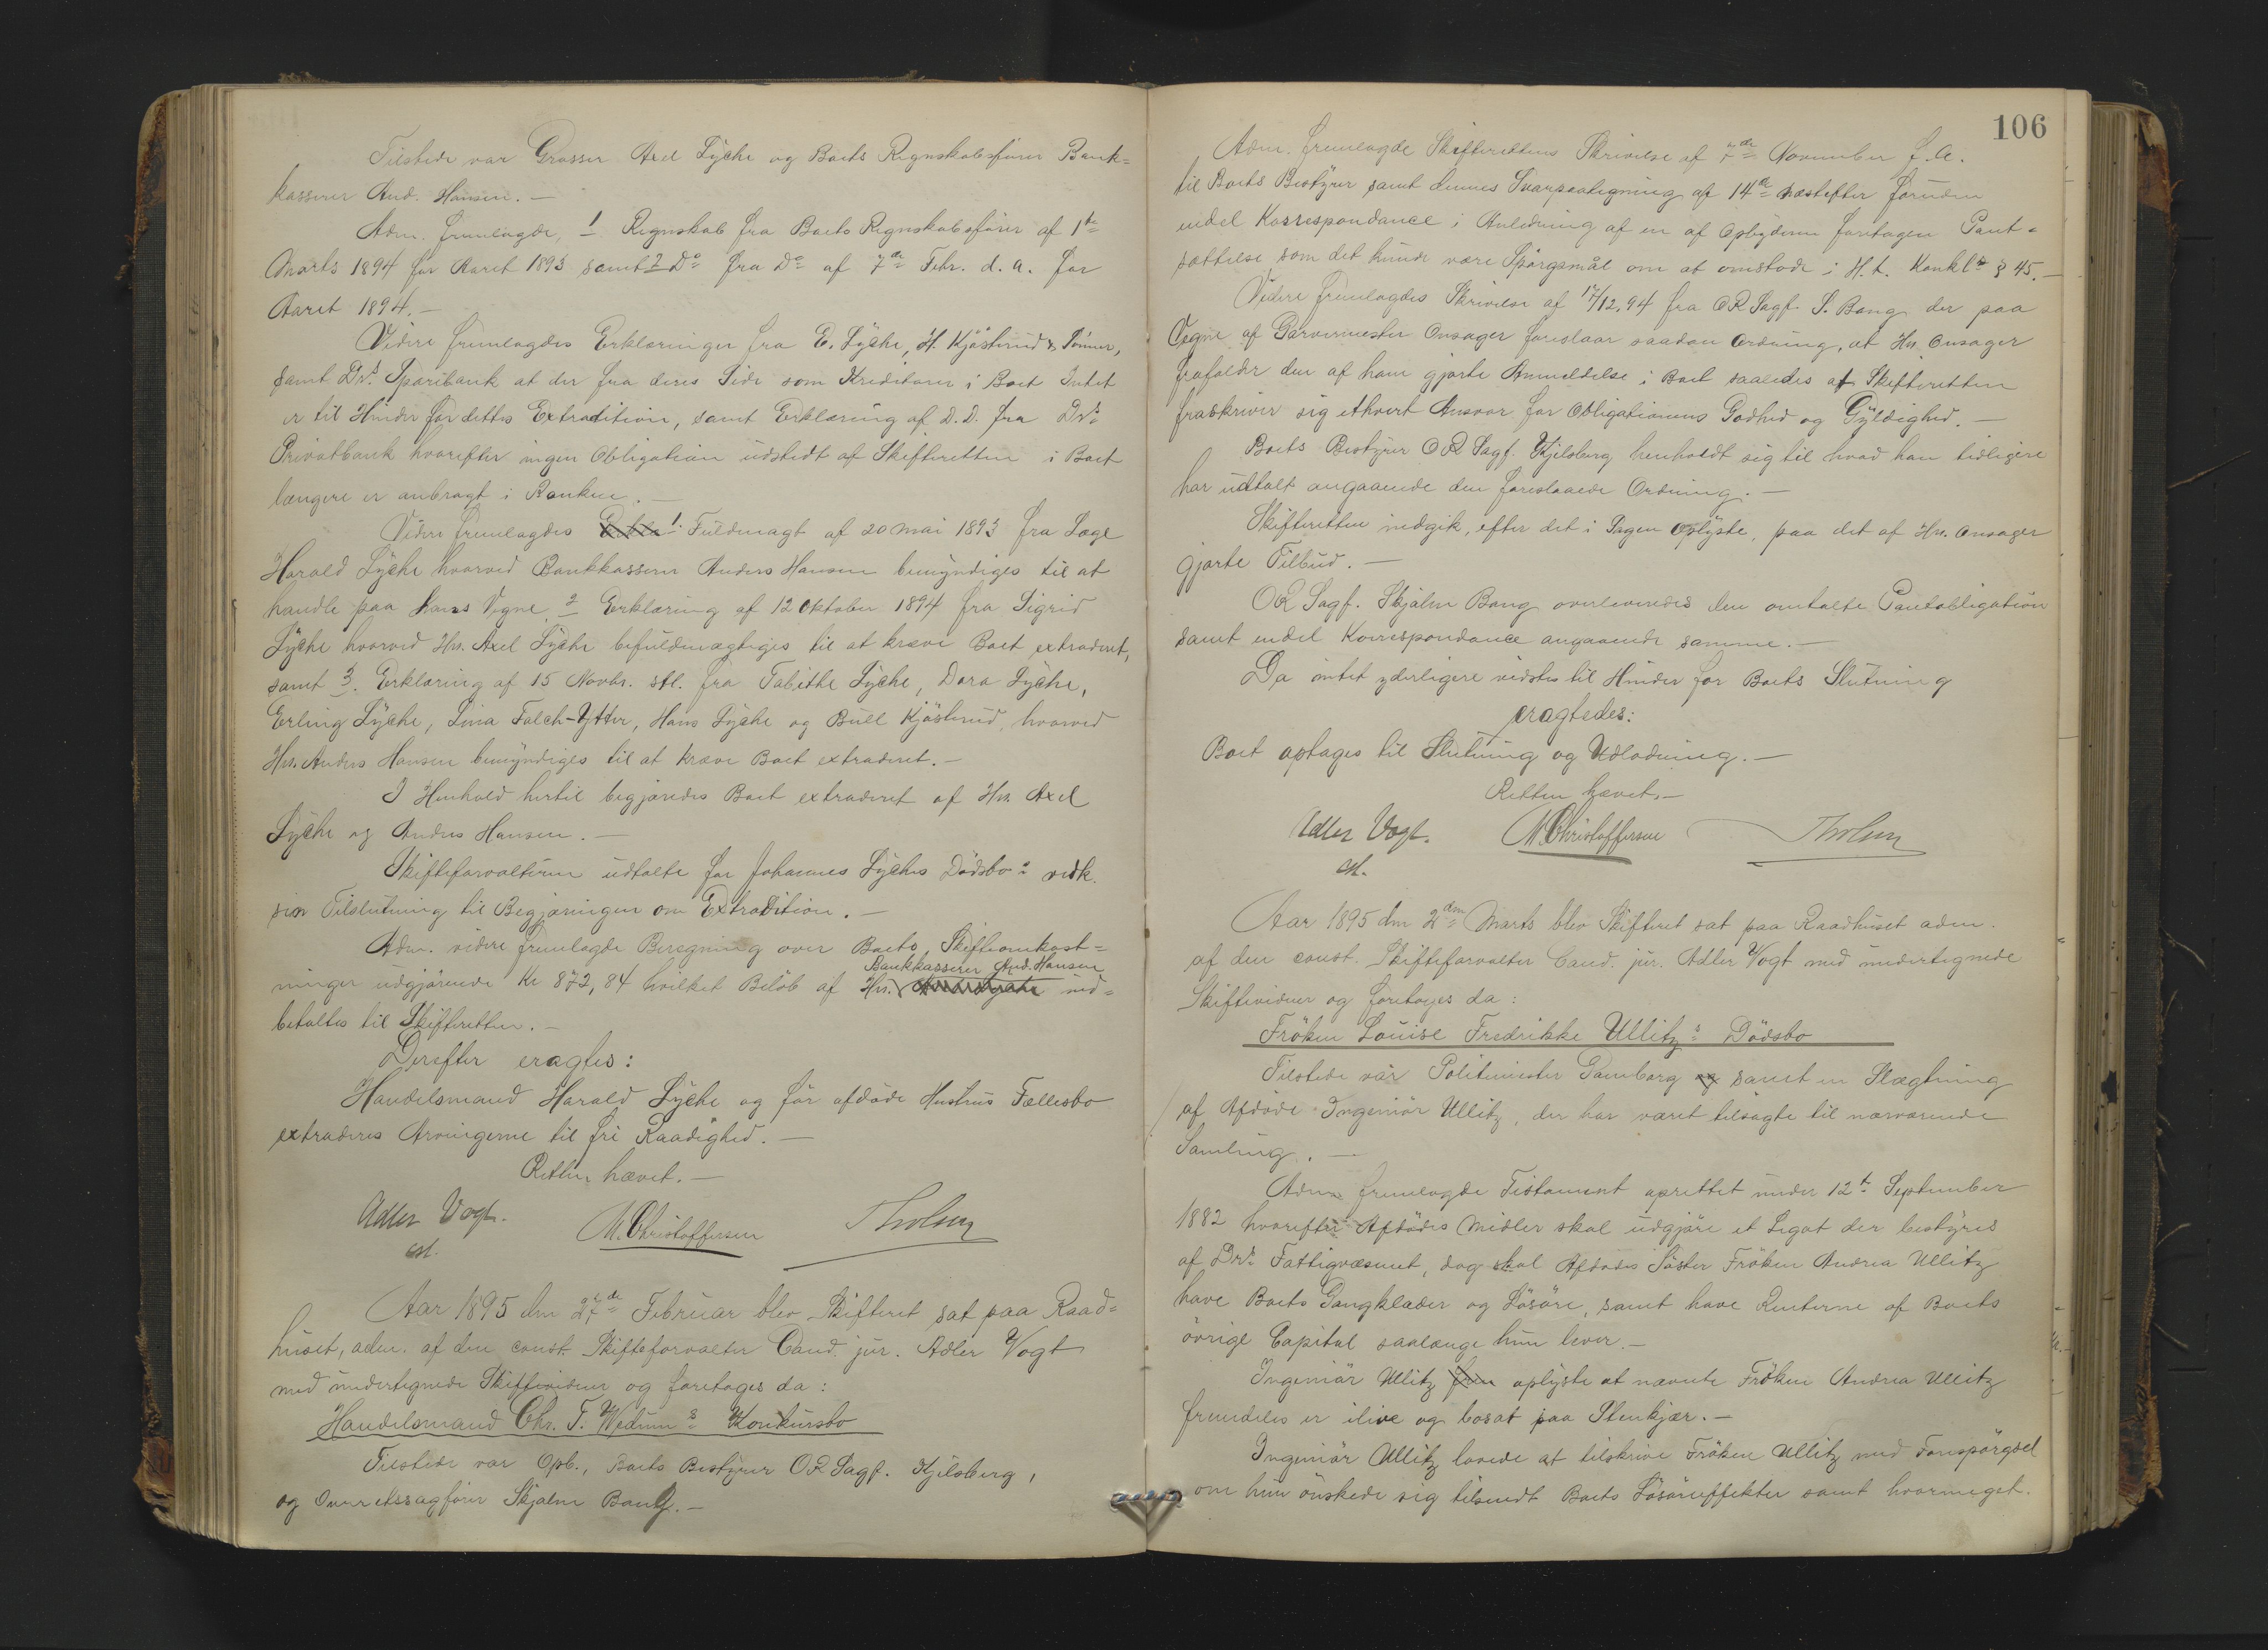 Tilstede var Grosser Axel Lyche og Boets Regnskabsfører Bank=
kasserer And. Hansen. —
Adm. fremlagde, 1 Regnskab fra Boets Regnskabsfører af 1ste
Marts 1894 for Aaret 1893 samt 2 Do fra Do af 7de Febr. d. a. for
Aaret 1894. —
Videre fremlagdes Erklæringer fra E. Lyche, H. Kjøsterud & Sønner,
samt Drs. Sparebank at der fra deres Side som Kreditorer i Boet Intet
er til Hinder for dettes Extradition, samt Erklæring af D.D. fra Drs
Privatbank hvorefter ingen Obligation udstedt af Skifteretten i Boet
længere er anbragt i Banken. —
Videre fremlagdes 1. Fuldmagt af 20 Mai 1893 fra Læge
Harald Lyche hvorved Bankkasserer Anders Hansen bemyndiges til at
handle paa hans Vegne, 2 Erklæring af 12 Oktober 1894 fra Sigrid
Lyche hvorved Hr. Axel Lyche befuldmægtiges til at kræve Boet extraderet,
samt 3. Erklæring af 15 Novbr. s.A. fra Tabithe Lyche, Dora Lyche,
Erling Lyche, Lina Falch-Ytter, Hans Lyche og Buell Kjøsterud, hvorved
Hr. Anders Hansen bemyndiges til at kræve Boet extraderet. —
I Henhold hertil begjæredes Boet extraderet af Hr. Axel
Lyche og Anders Hansen. —
Skifteforvalteren udtalte for Johannes Lyches Dødsbo's vedk.
sin Tilslutning til Begjæringen om Extradition. —
Adm. videre fremlagde Beregning over Boets Skifteomkost=
Bankkasserer And. Hansen
ninger udgjørende Kr 872,84 hvilket Beløb af Hr. ind=
betaltes til Skifteretten. —
Derefter eragtes:
Handelsmand Harald Lyche og før afdøde Hustrus Fællesbo
extraderes Arvingerne til fri Raadighed. —
Retten hævet. —
Adler Vogt. M. Christoffersen Tholsen
cst.
Aar 1895 den 27de Februar blev Skifteret sat paa Raad=
huset, adm. af den const. Skifteforvalter Cand. jur. Adler Vogt
med undertegnede Skiftevidner og foretoges da:
Handelsmand Chr. T. Wedum's Konkursbo
Tilstede var Opb., Boets Bestyrer OR Sagf. Kjelsberg,
og Overretssagfører Skjalm Bang. —
106
Adm. fremlagde Skifterettens Skrivelse af 7de November f. A.
til Boets Bestyrer samt dennes Svarpaategning af 14de næstefter foruden
endel Korrespondance i Anledning af en af Opbyderen foretagen Pant=
sættelse som det kunde være Spørgsmål om at omstøde i H. t. Konkl's § 45. —
Videre fremlagdes Skrivelse af 17/12.94 fra OR Sagf. S. Bang der paa
Vegne af Garvermester Onsager foreslaar saadan Ordning, at Hr. Onsager
frafalder den af ham gjorte Anmeldelse i Boet saaledes at Skifteretten
fraskriver sig ethvert Ansvar for Obligationens Godhed og Gyldighed. —
Boets Bestyrer OR Sagf. Kjelsberg henholdt sig til hvad han tidligere
har udtalt angaaende den foreslaaede Ordning. —
Skifteretten indgik, efter det i Sagen Oplyste, paa det af Hr. Onsager
gjorte Tilbud. —
OR Sagf. Skjalm Bang overleveredes den omtalte Pantobligation
samt endel Korrespondance angaaende samme. —
Da intet yderligere vidstes til Hinder for Boets Slutning
eragtedes:
Boet optages til Slutning og Udlodning. —
Retten hævet. —
Adler Vogt. M. Christoffersen Tholsen
cst.
Aar 1895 den 2den Marts blev Skifteret sat paa Raadhuset adm.
af den const. Skifteforvalter Cand. jur. Adler Vogt med undertegnede
Skiftevidner og foretoges da:
Frøken Louise Fredrikke Ullitz's Dødsbo
Tilstede var Politimester Gamborg samt en Slægtning
af Afdøde Ingeniør Ullitz, der har været tilsagte til nærværende
Samling. —
Adm. fremlagde Testament oprettet under 12te September
1882 hvorefter Afdødes Midler skal udgjøre et Legat der bestyres
af Drs Fattigvæsenet, dog skal Afdødes Søster Frøken Andrea Ullitz
have Boets Gangklæder og Løsøre, samt have Renterne af Boets
øvrige Capital saalænge hun lever. —
Ingeniør Ullitz oplyste at nævnte Frøken Andrea Ullitz
fremdeles er ilive og bosat paa Stenkjær. —
Ingeniør Ullitz lovede at tilskrive Frøken Ullitz med Forespørgsel
om hun ønskede sig tilsendt Boets Løsøreeffekter samt hvormeget.